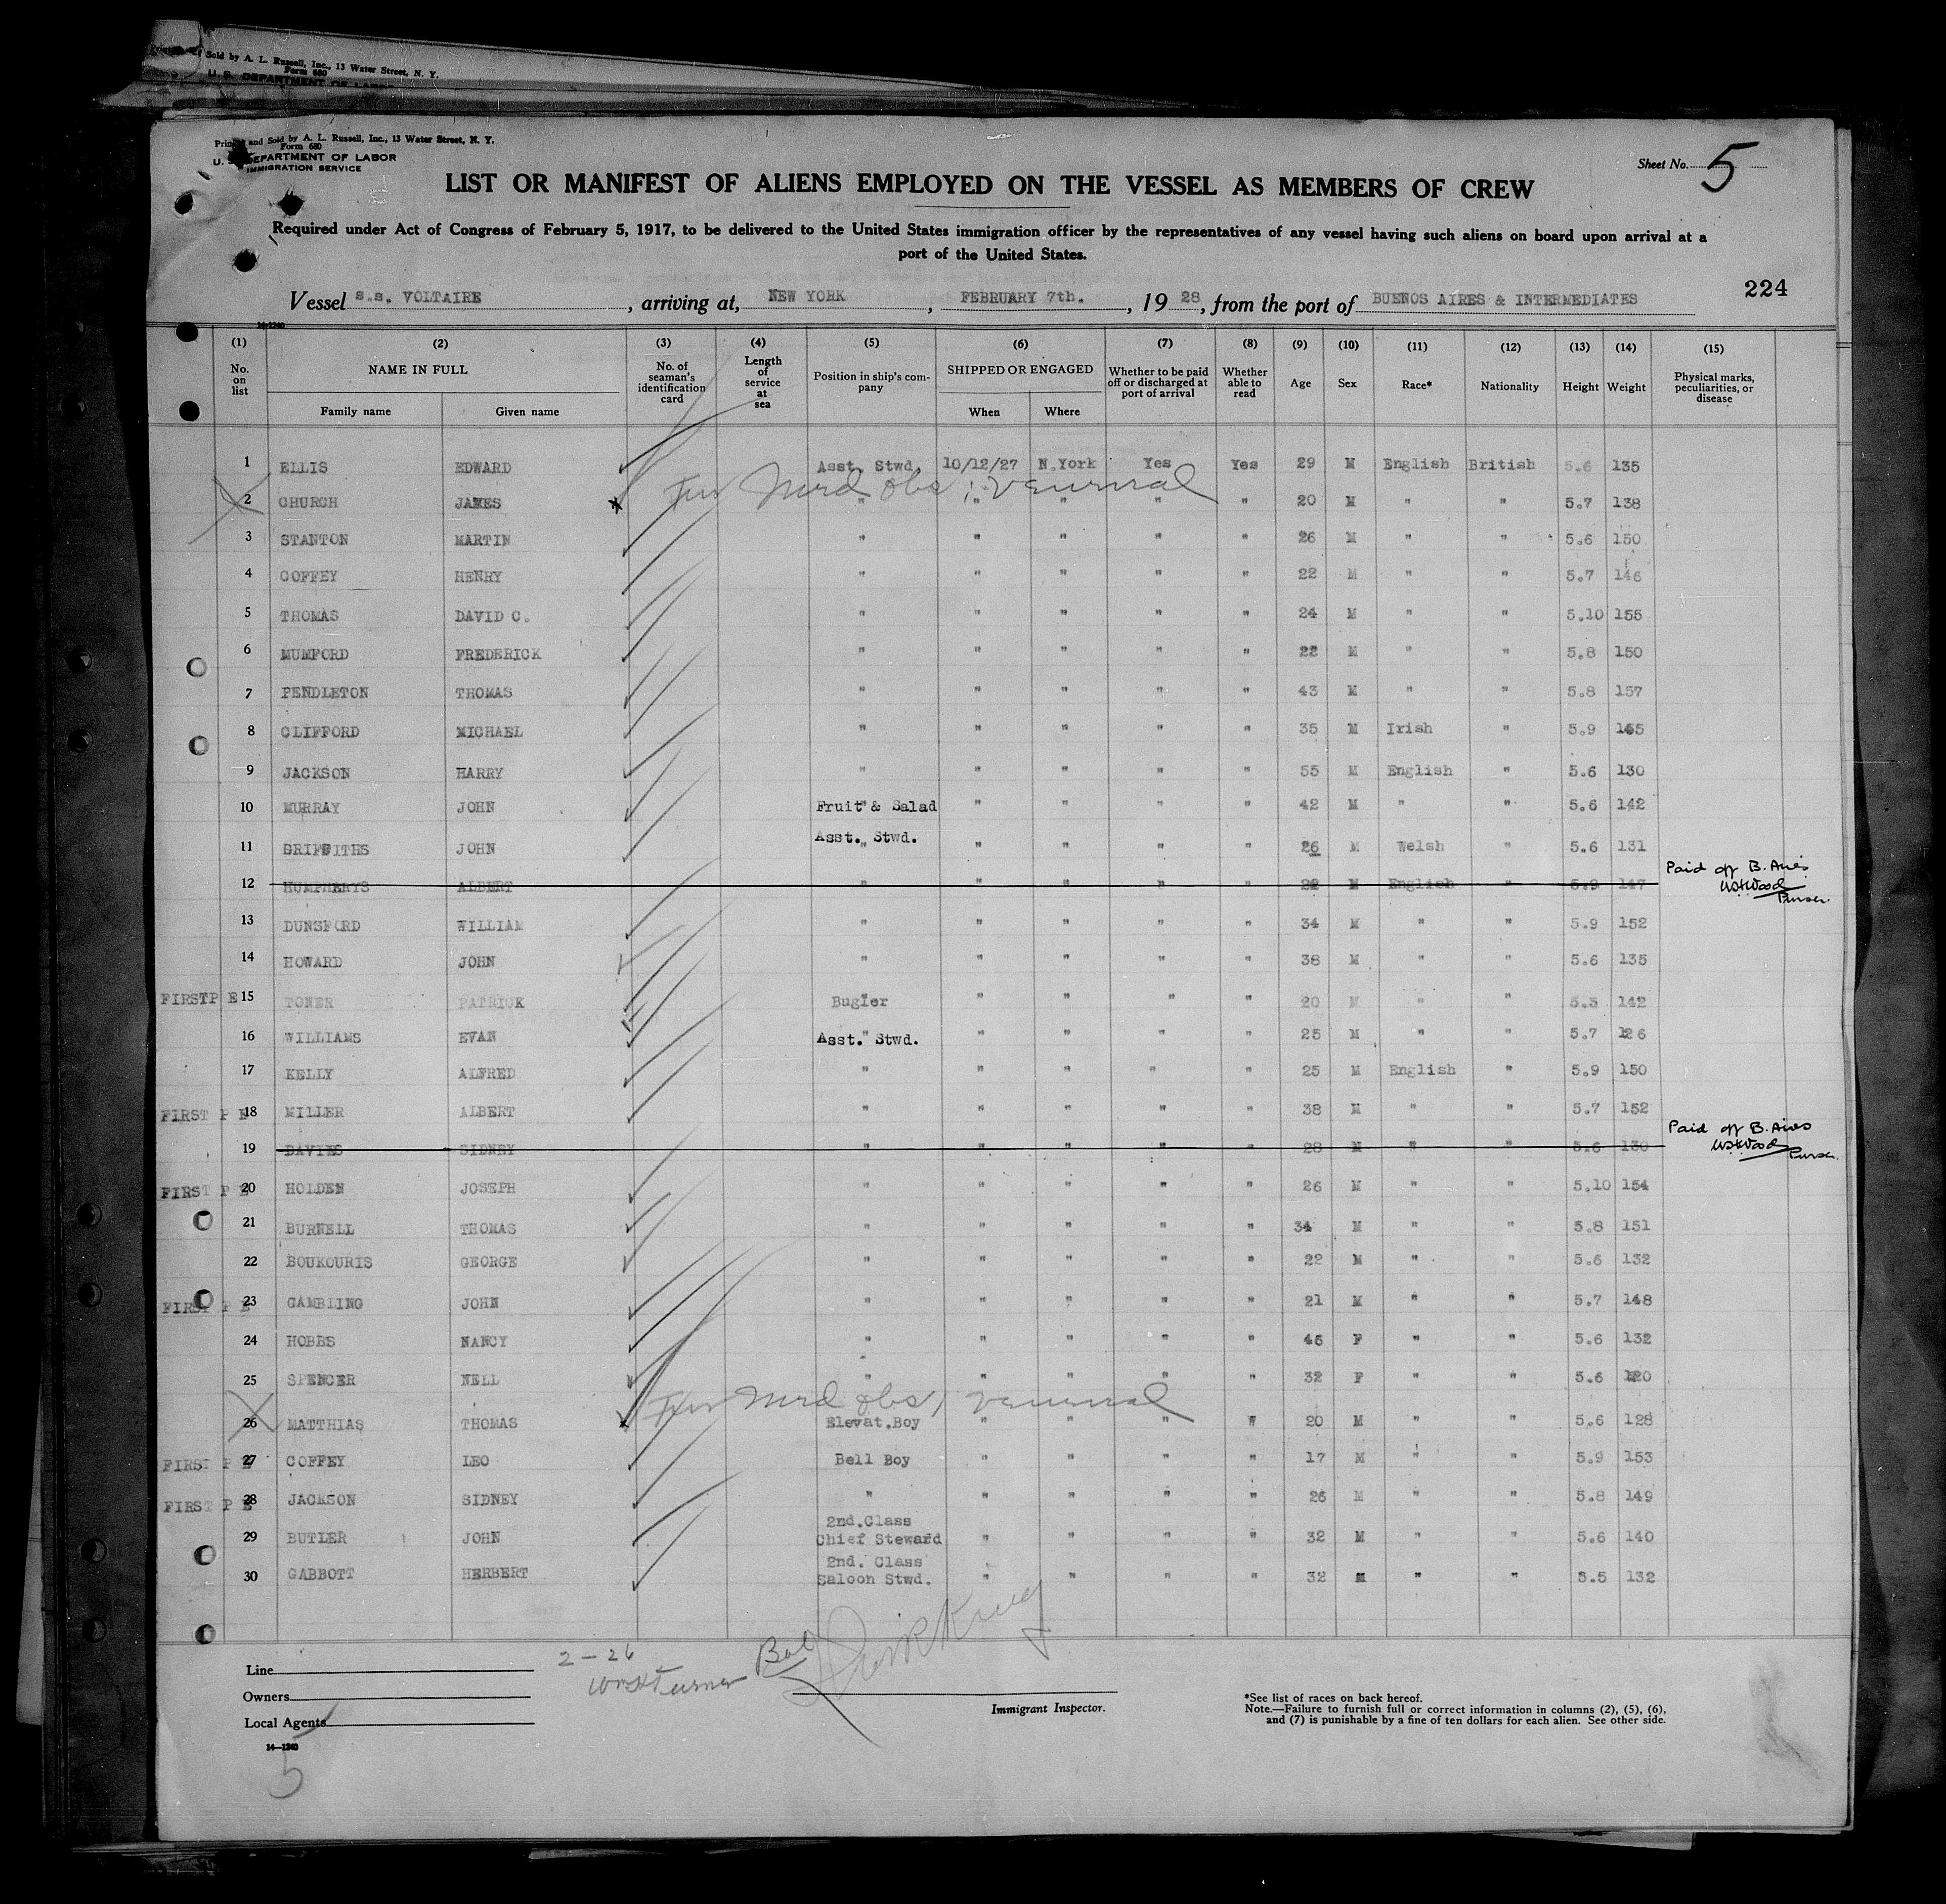 Sold by A. L. Russell, Inc., 13 Water Street, N. Y.
Form 680
U. S. DEPARTMENT OF LABOR
Printed and Sold by A. L. Russell, Inc., 13 Water Street, N. Y.
Form 680
U. S. DEPARTMENT OF LABOR
IMMIGRATION SERVICE
Sheet No. 5
LIST OR MANIFEST OF ALIENS EMPLOYED ON THE VESSEL AS MEMBERS OF CREW
Required under Act of Congress of February 5, 1917, to be delivered to the United States immigration officer by the representatives of any vessel having such aliens on board upon arrival at a
port of the United States.
224
Vessel s.s. VOLTAIRE, arriving at, NEW YORK, FEBRUARY 7th., 19 28, from the port of BUENOS AIRES & INTERMEDIATES
14-1240
(1) (2) (3) (4) (5) (6) (7) (8) (9) (10) (11) (12) (13) (14) (15)
No. on list NAME IN FULL Family name Given name No. of seaman's identification card Length of service at sea Position in ship's company SHIPPED OR ENGAGED When Where Whether to be paid off or discharged at port of arrival Whether able to read Age Sex Race* Nationality Height Weight Physical marks, peculiarities, or disease
1 ELLIS EDWARD Asst. Stwd. 10/12/27 N.York Yes Yes 29 M English British 5.6 135
For Med Obs; Venereal
2 CHURCH JAMES " " " " " 20 M " " 5.7 138
3 STANTON MARTIN " " " " " 26 M " " 5.6 150
4 COFFEY HENRY " " " " " 22 M " " 5.7 146
5 THOMAS DAVID C. " " " " " 24 M " " 5.10 155
6 MUMFORD FREDERICK " " " " " 22 M " " 5.8 150
7 PENDLETON THOMAS " " " " " 43 M " " 5.8 157
8 CLIFFORD MICHAEL " " " " " 35 M Irish " 5.9 165
9 JACKSON HARRY " " " " " 55 M English " 5.6 130
10 MURRAY JOHN Fruit & Salad " " " " 42 M " " 5.6 142
11 GRIFFITHS JOHN Asst. Stwd. " " " " 26 M Welsh " 5.6 131
12 HUMPHERYS ALBERT " " " " " 22 M English " 5.9 147 Paid off B. Aires
Purser
13 DUNSFORD WILLIAM " " " " " 34 M " " 5.9 152
14 HOWARD JOHN " " " " " 38 M " " 5.6 135
FIRST P E 15 TONER PATRICK Bugler " " " " 20 M " " 5.3 142
16 WILLIAMS EVAN Asst. Stwd. " " " " 25 M " " 5.7 126
17 KELLY ALFRED " " " " " 25 M English " 5.9 150
FIRST P E 18 MILLER ALBERT " " " " " 38 M " " 5.7 152
19 DAVIES SIDNEY " " " " " 28 M " " 5.6 130 Paid off B. Aires
Purser
FIRST P E 20 HOLDEN JOSEPH " " " " " 26 M " " 5.10 154
21 BURNELL THOMAS " " " " " 34 M " " 5.8 151
22 BOUKOURIS GEORGE " " " " " 22 M " " 5.6 132
FIRST P E 23 GAMBLING JOHN " " " " " 21 M " " 5.7 148
24 HOBBS NANCY " " " " " 45 F " " 5.6 132
25 SPENCER NELL " " " " " 32 F " " 5.6 120
For Med Obs, Venereal
26 MATTHIAS THOMAS Elevat.Boy " " " " 20 M " " 5.6 128
FIRST P E 27 COFFEY LEO Bell Boy " " " " 17 M " " 5.9 153
FIRST P E 28 JACKSON SIDNEY " " " " " 26 M " " 5.8 149
29 BUTLER JOHN 2nd.Class Chief Steward " " " " 32 M " " 5.6 140
30 GABBOTT HERBERT 2nd. Class Saloon Stwd. " " " " 32 M " " 5.5 132
2-26
Bal
Line
Owners
Local Agents
Immigrant Inspector.
*See list of races on back hereof.
Note.—Failure to furnish full or correct information in columns (2), (5), (6),
and (7) is punishable by a fine of ten dollars for each alien. See other side.
14-1240
5